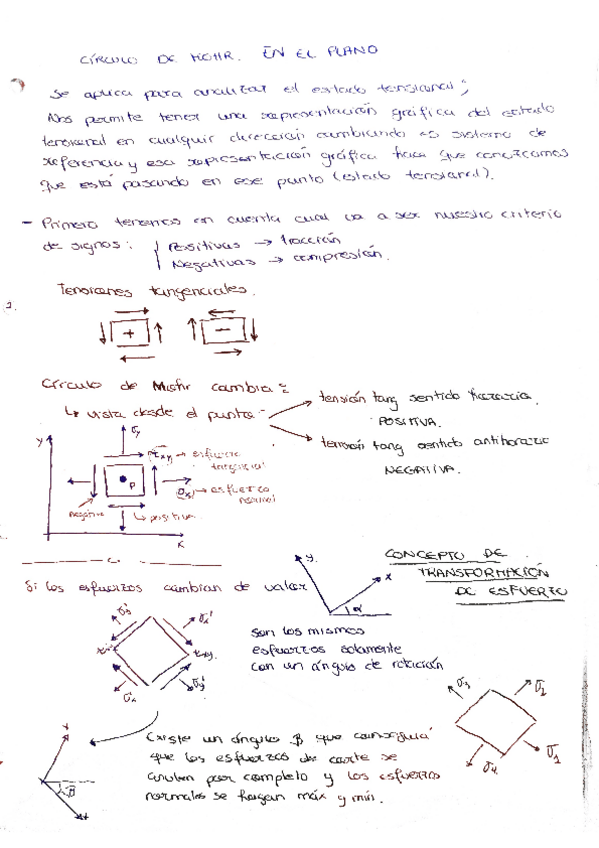 CÍRCULO DE MOHR. EN EL PLANO
Se aplica para analizar el estado tensional;
Nos permite tener una representación gráfica del estado
tensional en cualquir dirección cambiando el sistema de
referencia y esa representación gráfica hace que conozcamos
que está pasando en ese punto (estado tensional).
- Primero tenemos en cuenta cual va a ser nuestro criterio
de signos: Positivas → tracción
Negativas → compresión.
Tensiones tangenciales.
1.
+ -
Círculo de Mohr cambia:
↳ vista desde el punto
tensión tang sentido horario.
POSITIVA.
tensión tang sentido antihorario
NEGATIVA.
y σy
τxy → esfuerzo
tangencial
P σx → esfuerzo
normal
negativa ↳ positiva
x
Si los esfuerzos cambian de valor
y. x α
CONCEPTO DE
TRANSFORMACIÓN
DE ESFUERZO
son los mismos
esfuerzos solamente
con un ángulo de rotación
Existe un ángulo β que conseguiá
que los esfuerzos de corte se
anulen por completo y los esfuerzos
normales se hagan máx y mín.
β
σ3 σ2
σ4 σ1